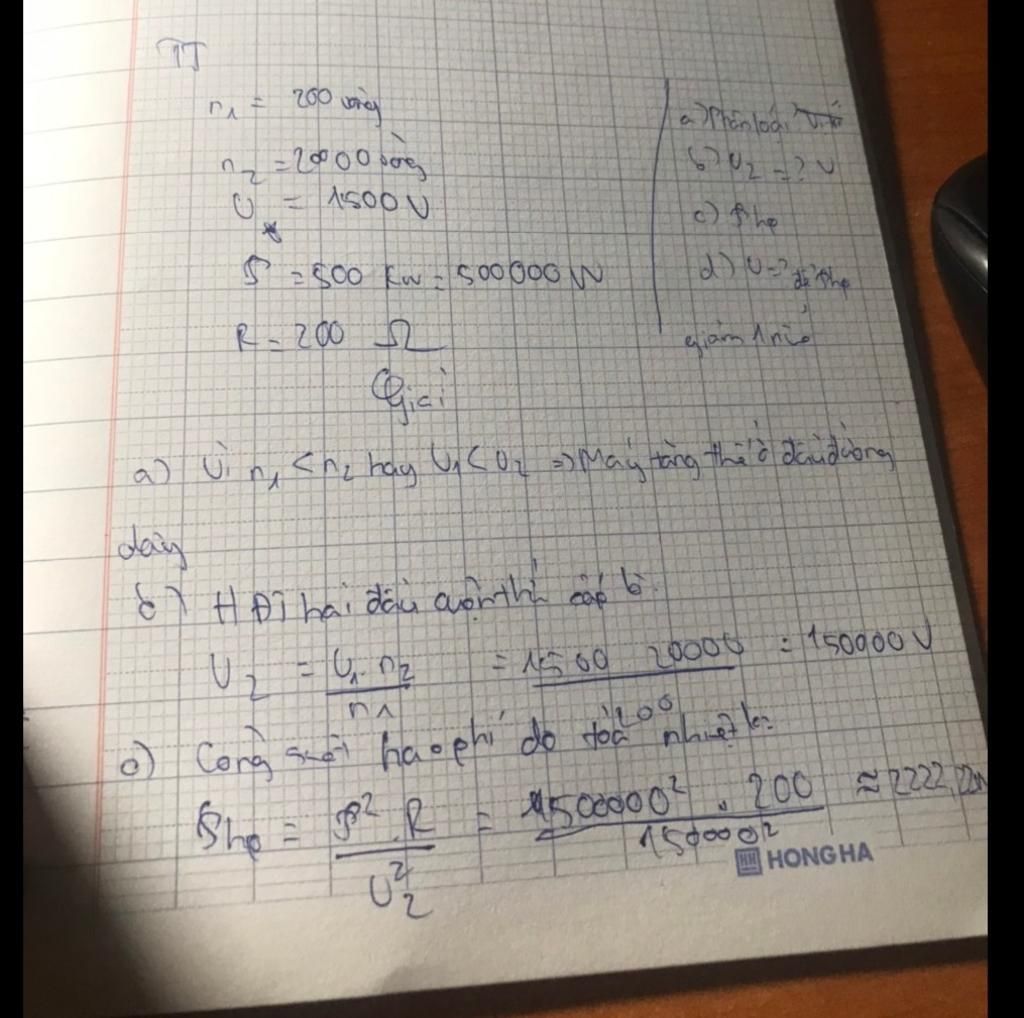 TT
n1 = 200 vòng
n2 = 20000 vòng
U = 1500V
P = 500 KW = 500000W
R = 200 Ω
a) Phân loại
b) U2 = ? V
c) Php
d) U = ? để Php
giảm 1 nửa
Giải
a) Vì n1 < n2 hay U1 < U2 => Máy tăng thế ở đầu đường
dây
b) HĐT hai đầu cuộn thứ cấp là:
U2 = U1.n2 / n1 = 1500 20000 / 200 = 150000V
c) Công suất hao phí do tỏa nhiệt là:
Php = P².R / U2² = 500000² . 200 / 150000² ≈ 2222,22W
HONG HA